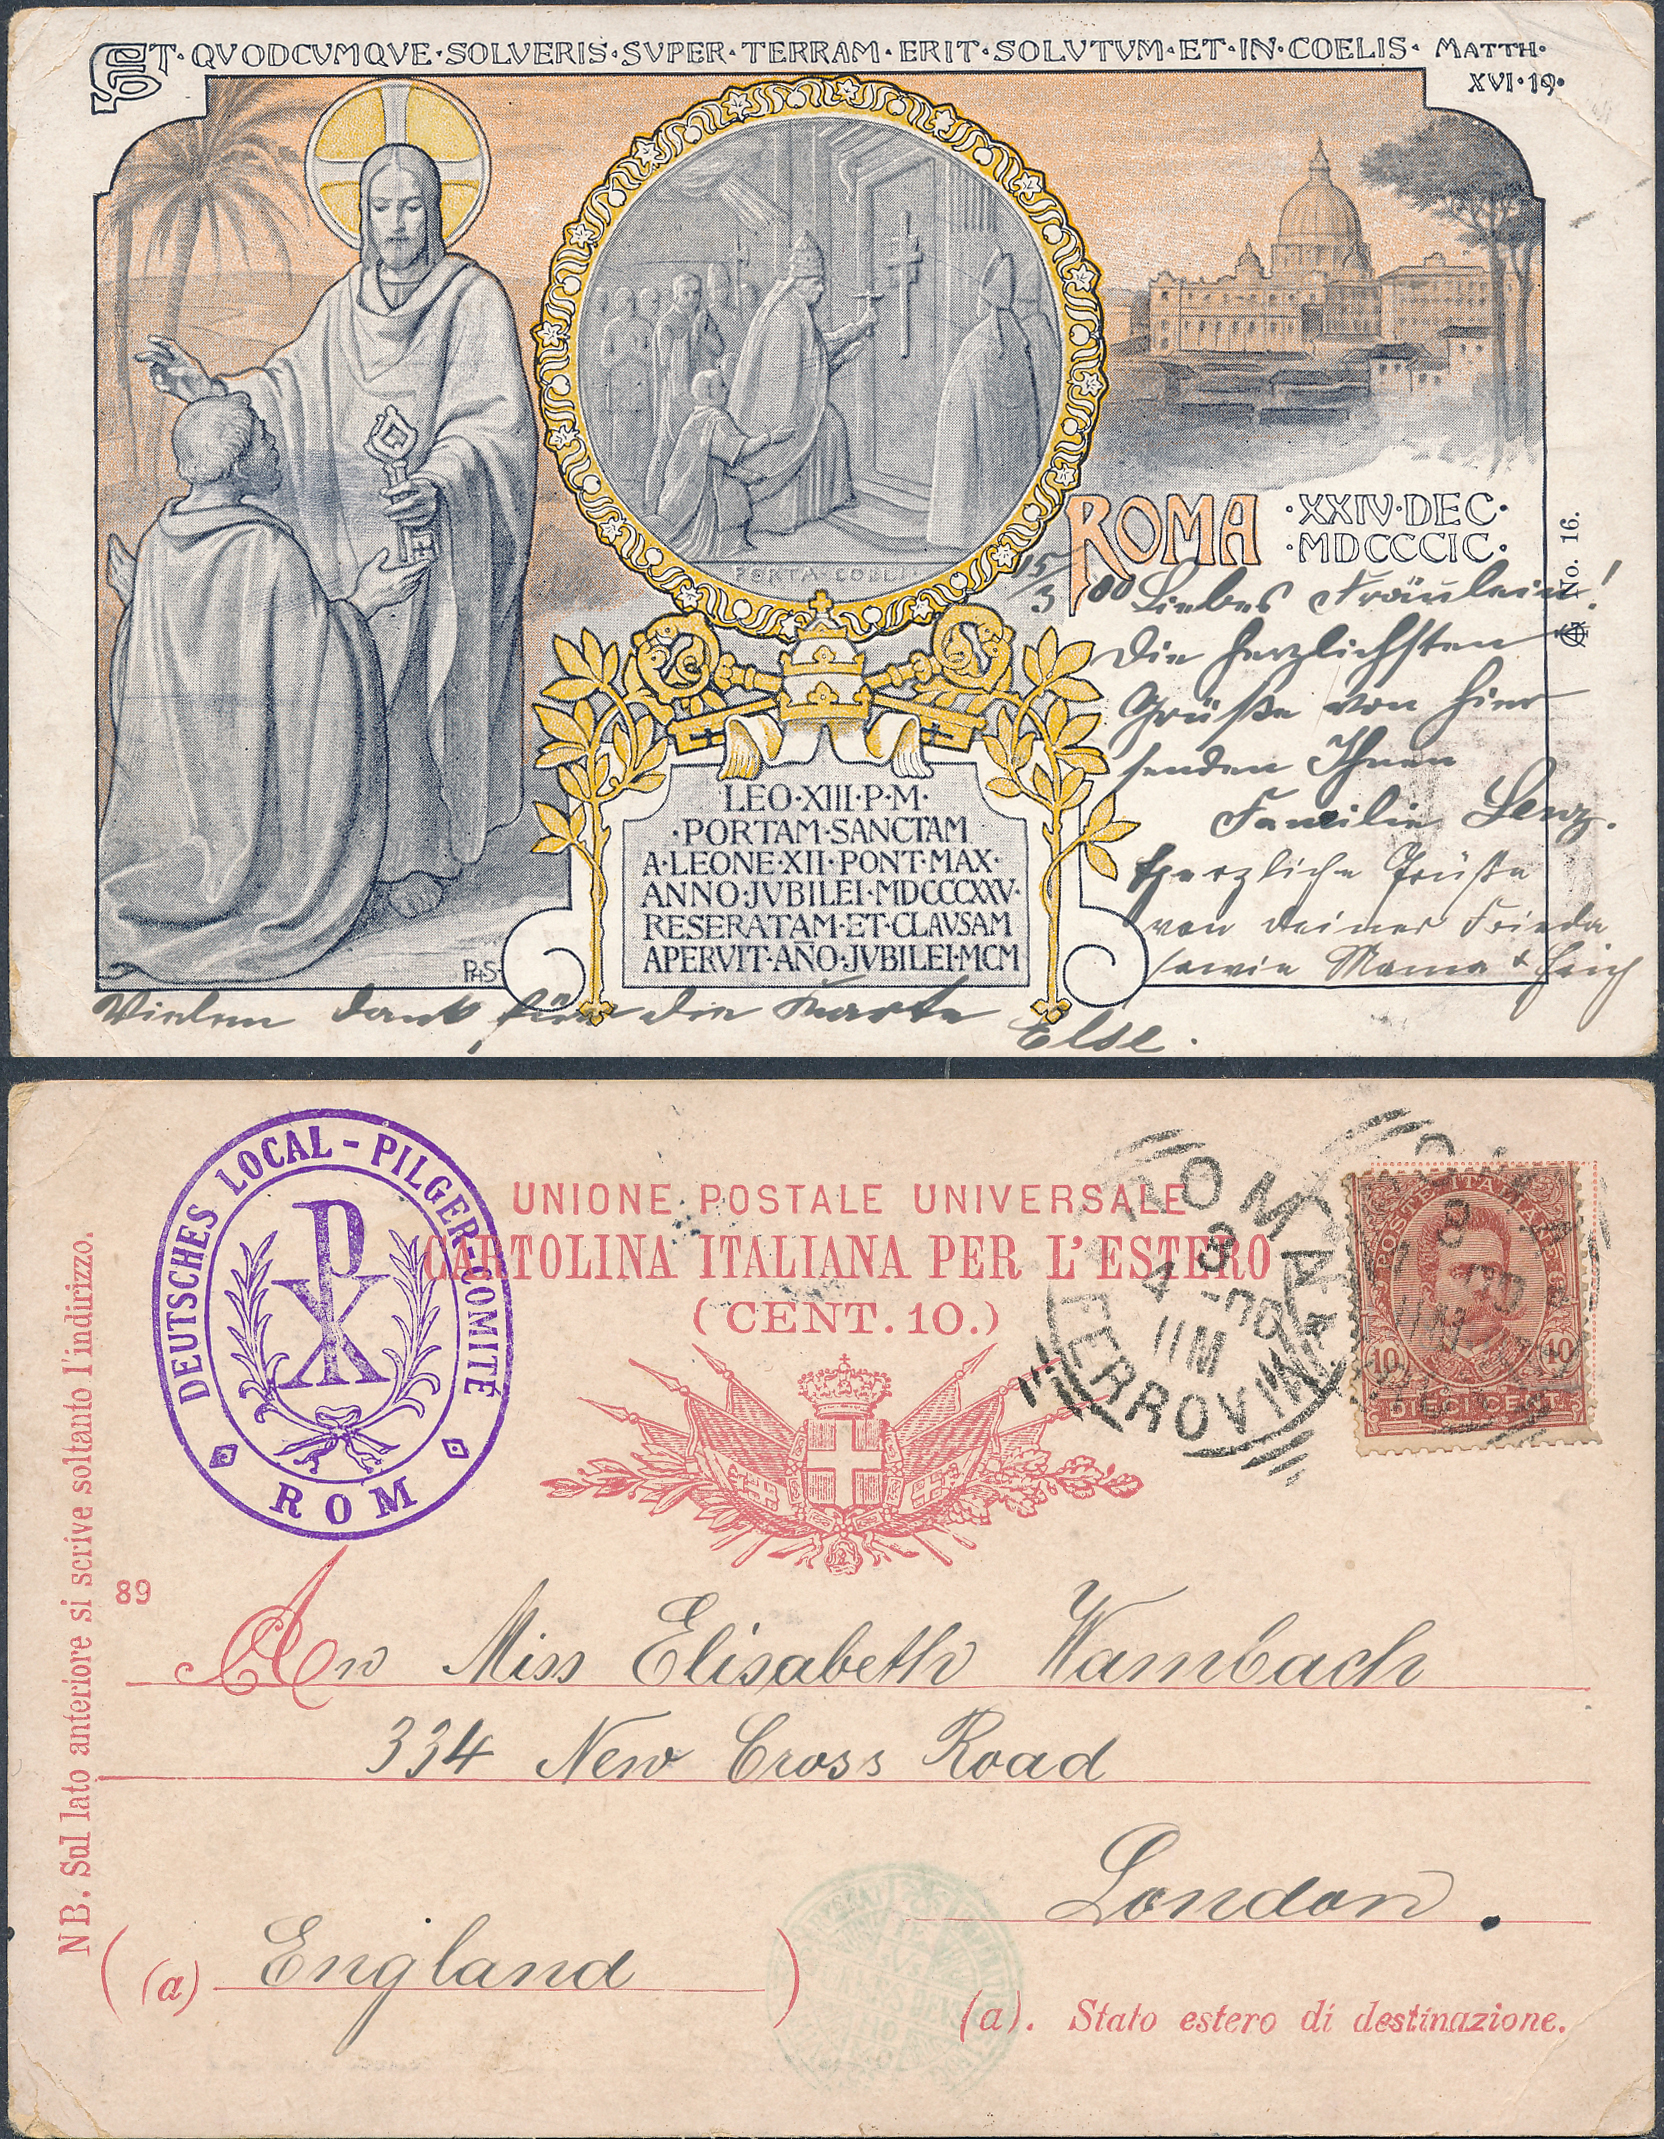 ET·QVODCVMQVE·SOLVERIS·SVPER·TERRAM·ERIT·SOLVTVM·ET·IN·COELIS· MATTH·
XVI·19·
PORTA·COELI
ROMA ·XXIV·DEC·
·MDCCCIC·
No. 16.
15/3 00 Liebes Fräulein!
Die herzlichsten
Grüße von hier
senden Ihnen
Familie Lenz.
Herzliche Grüße
von Deiner Frieda
sowie Mama & Erich
Vielen Dank für die Karte
Else.
LEO·XIII·P·M·
·PORTAM·SANCTAM
A·LEONE·XII·PONT·MAX·
ANNO·JVBILEI·MDCCCXXV·
RESERATAM·ET·CLAVSAM
APERVIT·AÑO·JVBILEI·MCM
PHS
DEUTSCHES LOCAL-PILGER-COMITÉ
ROM
PX
UNIONE POSTALE UNIVERSALE
CARTOLINA ITALIANA PER L'ESTERO
(CENT. 10.)
ROMA
FERROVIA
3
11M
POSTE ITALIANE
10 10
DIECI CENT.
N B. Sul lato anteriore si scrive soltanto l'indirizzo.
89
An Miss Elisabeth Wambach
334 New Cross Road
London.
(a) England
(a). Stato estero di destinazione.